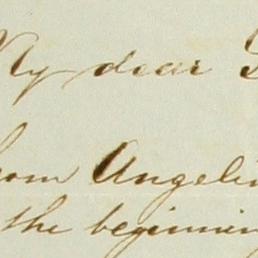 My dear
from Angelin
the beginnin